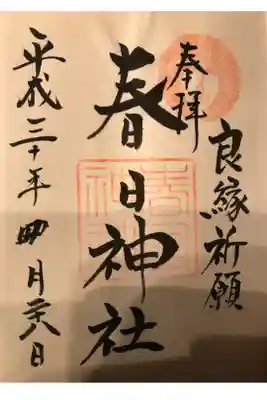 良縁祈願
奉拝
春日神社
平成三十年四月廿八日